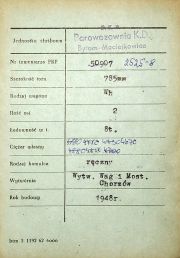 P.K.P.
Jednostka służbowa Parowozownia K.D.
Bytom-Maciejkowice
Nr inwentarza PKP 50907 2525-8
Szerokość toru 785mm
Rodzaj wagonu Wb
Ilość osi 2
Ładowność w t. 8t.
Ciężar własny
Rodzaj hamulca ręczny
Wytwórnia Wytw. Wag i Most.
Chorzów
Rok budowy 1948r.